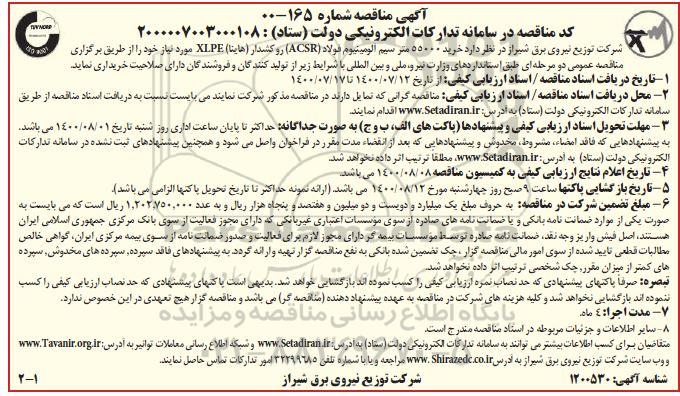 آگهی مناقصه شماره ۱۶۵-۰۰
کد مناقصه در سامانه تدارکات الکترونیکی دولت (ستاد) : ۲۰۰۰۰۰۷۰۰۳۰۰۰۱۰۸
شرکت توزیع نیروی برق شیراز در نظر دارد خرید ۵۵۰۰۰ متر سیم آلومینیوم فولاد (ACSR) روکشدار (هاینا) XLPE مورد نیاز خود را از طریق برگزاری
مناقصه عمومی دو مرحله ای طبق استانداردهای وزارت نیرو، ملی و بین المللی با شرایط زیر از تولید کنندگان و فروشندگان دارای صلاحیت خریداری نماید.
۱-تاریخ دریافت اسناد مناقصه / اسناد ارزیابی کیفی: از تاریخ ۱۴۰۰/۰۷/۱۲ تا ۱۴۰۰/۰۷/۱۷
۲- محل دریافت اسناد مناقصه / اسناد ارزیابی کیفی: مناقصه گرانی که تمایل دارند در مناقصه مذکور شرکت نمایند می بایست نسبت به دریافت اسناد مناقصه از طریق
سامانه تدارکات الکترونیکی دولت (ستاد) به آدرس: www.Setadiran.ir اقدام نمایند.
۳- مهلت تحویل اسناد ارزیابی کیفی و پیشنهادها (پاکت های الف، ب و ج) به صورت جداگانه: حداکثر تا پایان ساعت اداری روز شنبه تاریخ ۱۴۰۰/۰۸/۰۱ می باشد.
به پیشنهادهایی که فاقد امضاء، مشروط، مخدوش و پیشنهادهایی که بعد از انقضاء مدت مقرر در فراخوان واصل می شود و همچنین پیشنهادهای ثبت نشده در سامانه تدارکات
الکترونیکی دولت (ستاد) به آدرس: www.Setadiran.ir، مطلقا ترتیب اثر داده نخواهد شد.
۴- تاریخ اعلام نتایج ارزیابی کیفی به کمیسیون مناقصه ۱۴۰۰/۰۸/۰۸ می باشد.
۵-تاریخ بازگشایی پاکتها ساعت ۹ صبح روز چهارشنبه مورخ ۱۴۰۰/۰۸/۱۲ می باشد. (ارائه نمونه حداکثر تا تاریخ تحویل پاکتها الزامی می باشد).
۶- مبلغ تضمین شرکت در مناقصه: به حروف مبلغ یک میلیارد و دویست و دو میلیون و هفتصد و پنجاه هزار ریال و به عدد ۱,۲۰۲,۷۵۰,۰۰۰ ریال است که می بایست به
صورت یکی از موارد ضمانت نامه بانکی و یا ضمانت نامه های صادره از سوی موسسات اعتباری غیربانکی که دارای مجوز فعالیت از سوی بانک مرکزی جمهوری اسلامی ایران
هستند، اصل فیش واریز وجه نقد، ضمانت نامه صادره توسط موسسات بیمه گر دارای مجوز لازم برای فعالیت و صدور ضمانت نامه از سوی بیمه مرکزی ایران، گواهی خالص
مطالبات قطعی تایید شده از سوی امور مالی مناقصه گزار، چک تضمین شده بانکی به نفع مناقصه گزار تهیه و ارائه گردد. به پیشنهادهای فاقد سپرده، سپرده های مخدوش، سپرده
های کمتر از میزان مقرر، چک شخصی ترتیب اثر داده نخواهد شد.
تبصره: صرفا پاکتهای پیشنهادی که حد نصاب نمره ارزیابی کیفی را کسب نموده اند بازگشایی خواهد شد. بدیهی است پاکتهای پیشنهادی که حد نصاب ارزیابی کیفی را کسب
ننموده اند بازگشایی نخواهد شد و کلیه هزینه های شرکت در مناقصه به عهده پیشنهاد دهنده (مناقصه گر) می باشد و مناقصه گزار هیچ تعهدی در این خصوص ندارد.
۷- مدت اجرا: ۴ ماه.
۸- سایر اطلاعات و جزئیات مربوطه در اسناد مناقصه مندرج است.
متقاضیان برای کسب اطلاعات بیشتر می توانند به سامانه تدارکات الکترونیکی دولت (ستاد) به آدرس: www.Setadiran.ir و شبکه اطلاع رسانی معاملات توانیر به آدرس: www.Tavanir.org.ir
و وب سایت شرکت توزیع نیروی برق شیراز به آدرس www.Shirazedc.co.ir مراجعه و یا با شماره تلفن ۳۲۲۹۹۶۸۵ امور تدارکات تماس حاصل نمایند.
شناسه آگهی: ۱۲۰۰۵۳۰ شرکت توزیع نیروی برق شیراز ۲-۱